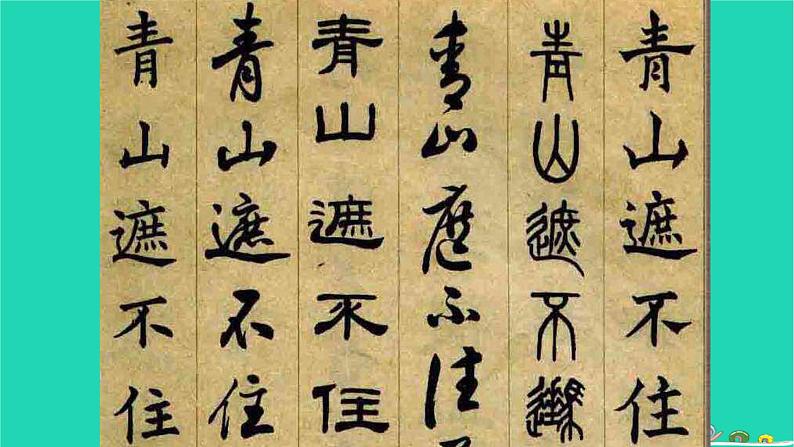 青山遮不住
青山遮不
青山遮不住
青山遮不住
青山遮不住
青山遮不住